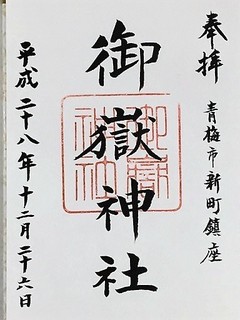 奉拝
青梅市新町鎮座
御嶽神社
平成二十八年十二月二十六日